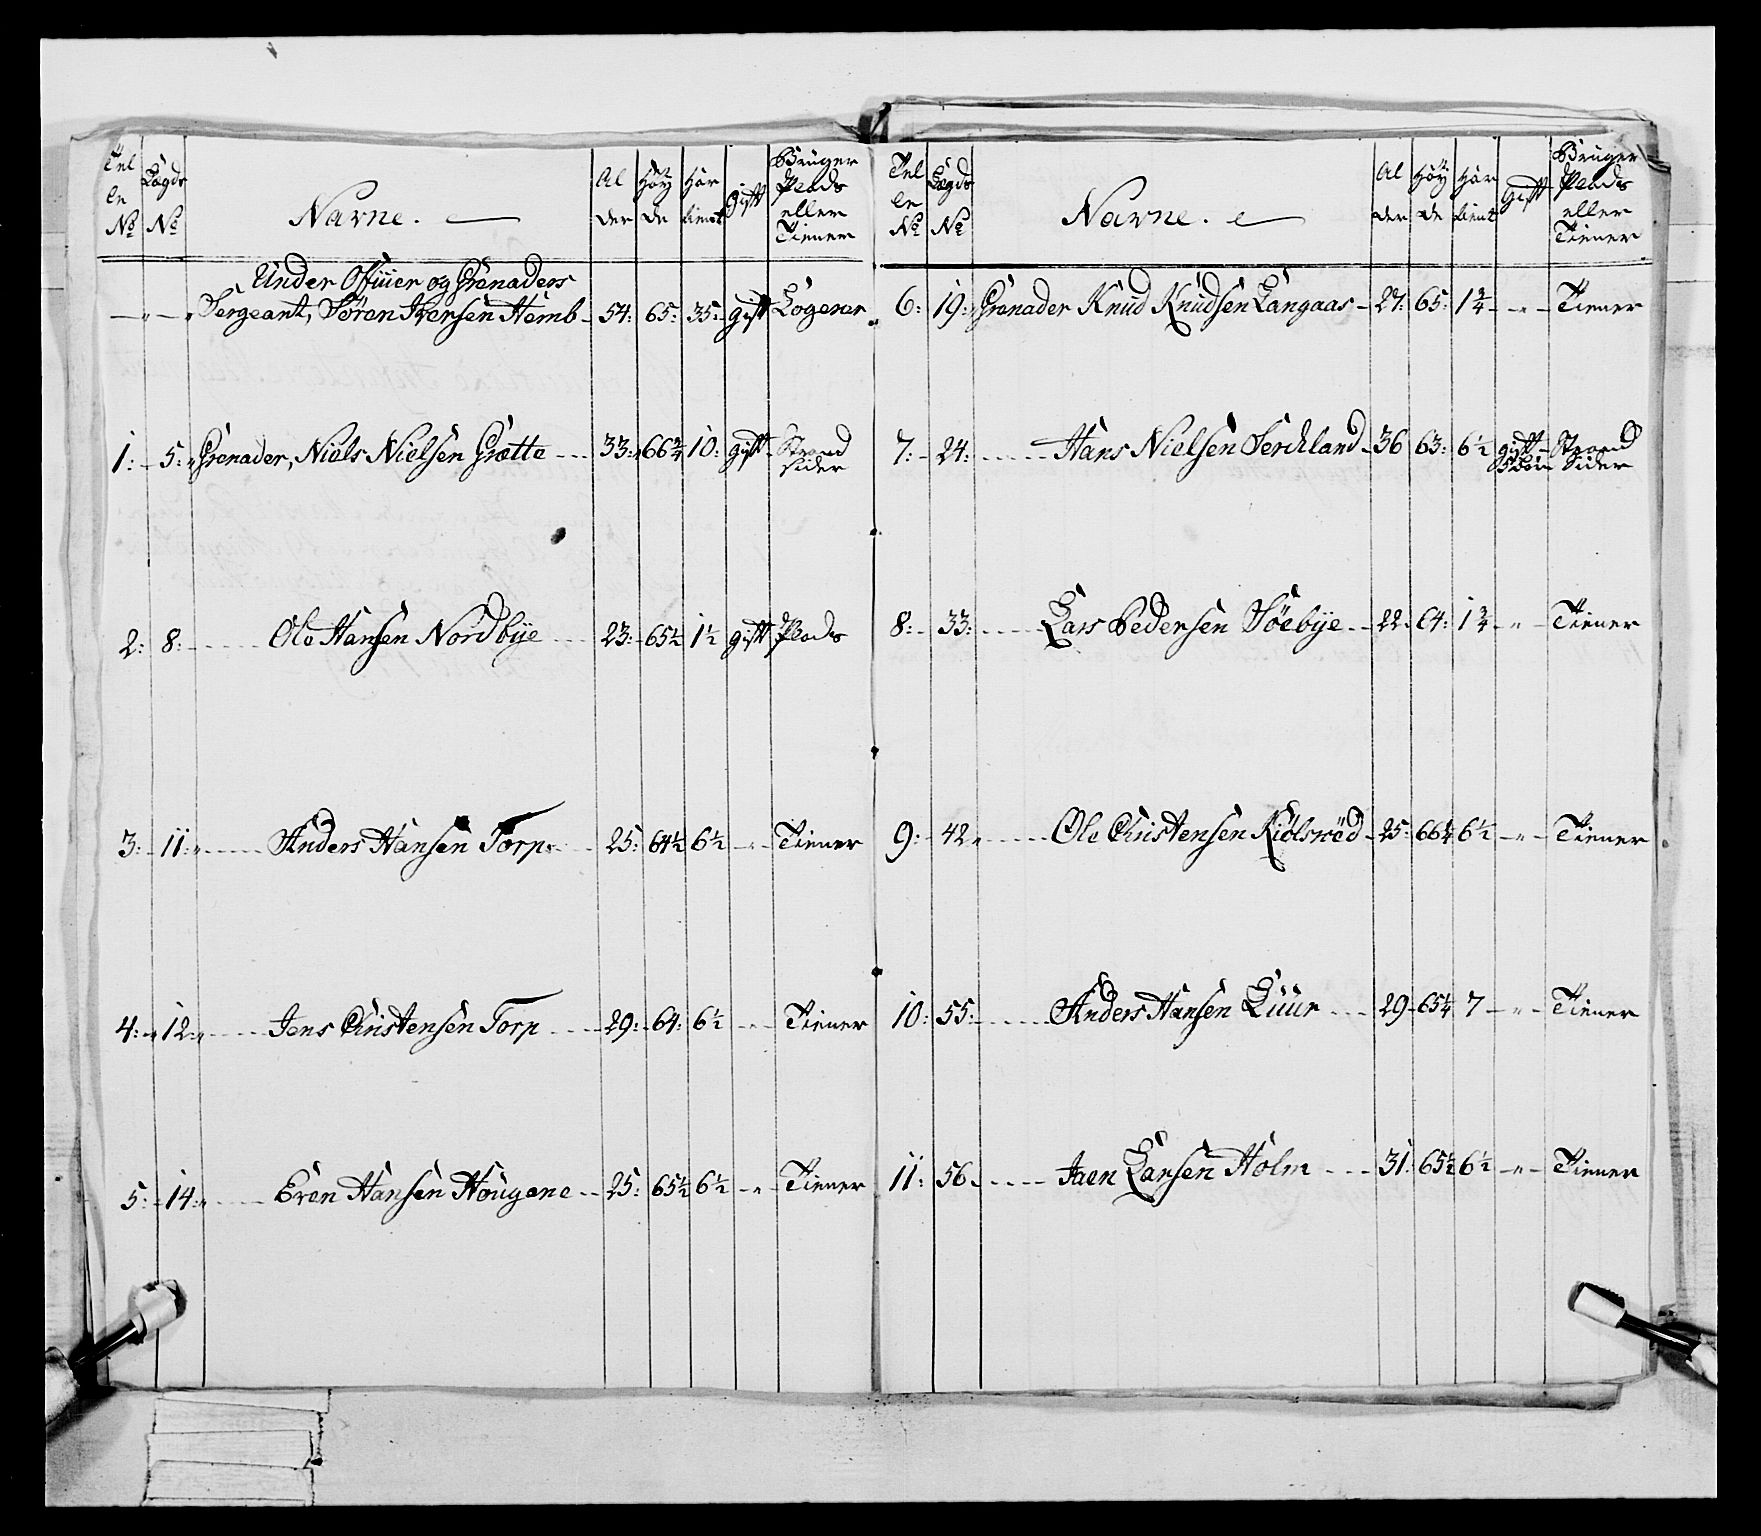 Telle No Lægds No Navne. Alder Höyde Har tient Gift Bruger Plads eller Tiener
Under Officier og Grenaders
Sergeant, Sören Iversen Hemb 54: 65: 35: gift Logerer
1: 5: Grenader, Niels Nielsen Grætte 33: 66 3/4 10: gift Strand sider
2: 8: Ole Hansen Nordbye 23: 65 1/2 1 1/2 gift Plads
3: 11: Anders Hansen Torp 25: 64 1/2 6 1/2 " Tiener
4: 12 Jens Christensen Torp 29: 64: 6 1/2 " Tiener
5: 14: Even Hansen Hougene 25: 65 1/2 6 1/2 " Tiener
Telle No Lægds No Navne. Alder Höyde Har tient Gift Bruger Plads eller Tiener
6: 19: Grenader Knud Knudsen Langaas 27: 65: 1 3/4 " Tiener
7: 24: Hans Nielsen Serckland 36 63: 6 1/2 gift Strand Sider
8: 33: Lars Pedersen Söebye 22 64: 1 3/4 " Tiener
9: 42 Ole Christensen Kiölsröd 25: 66 1/4 6 1/2 " Tiener
10: 55: Anders Hansen Luur 29 65 1/4 7 " Tiener
11: 56 Jacn Larsen Holm 31: 65 1/2 6 1/2 " Tiener